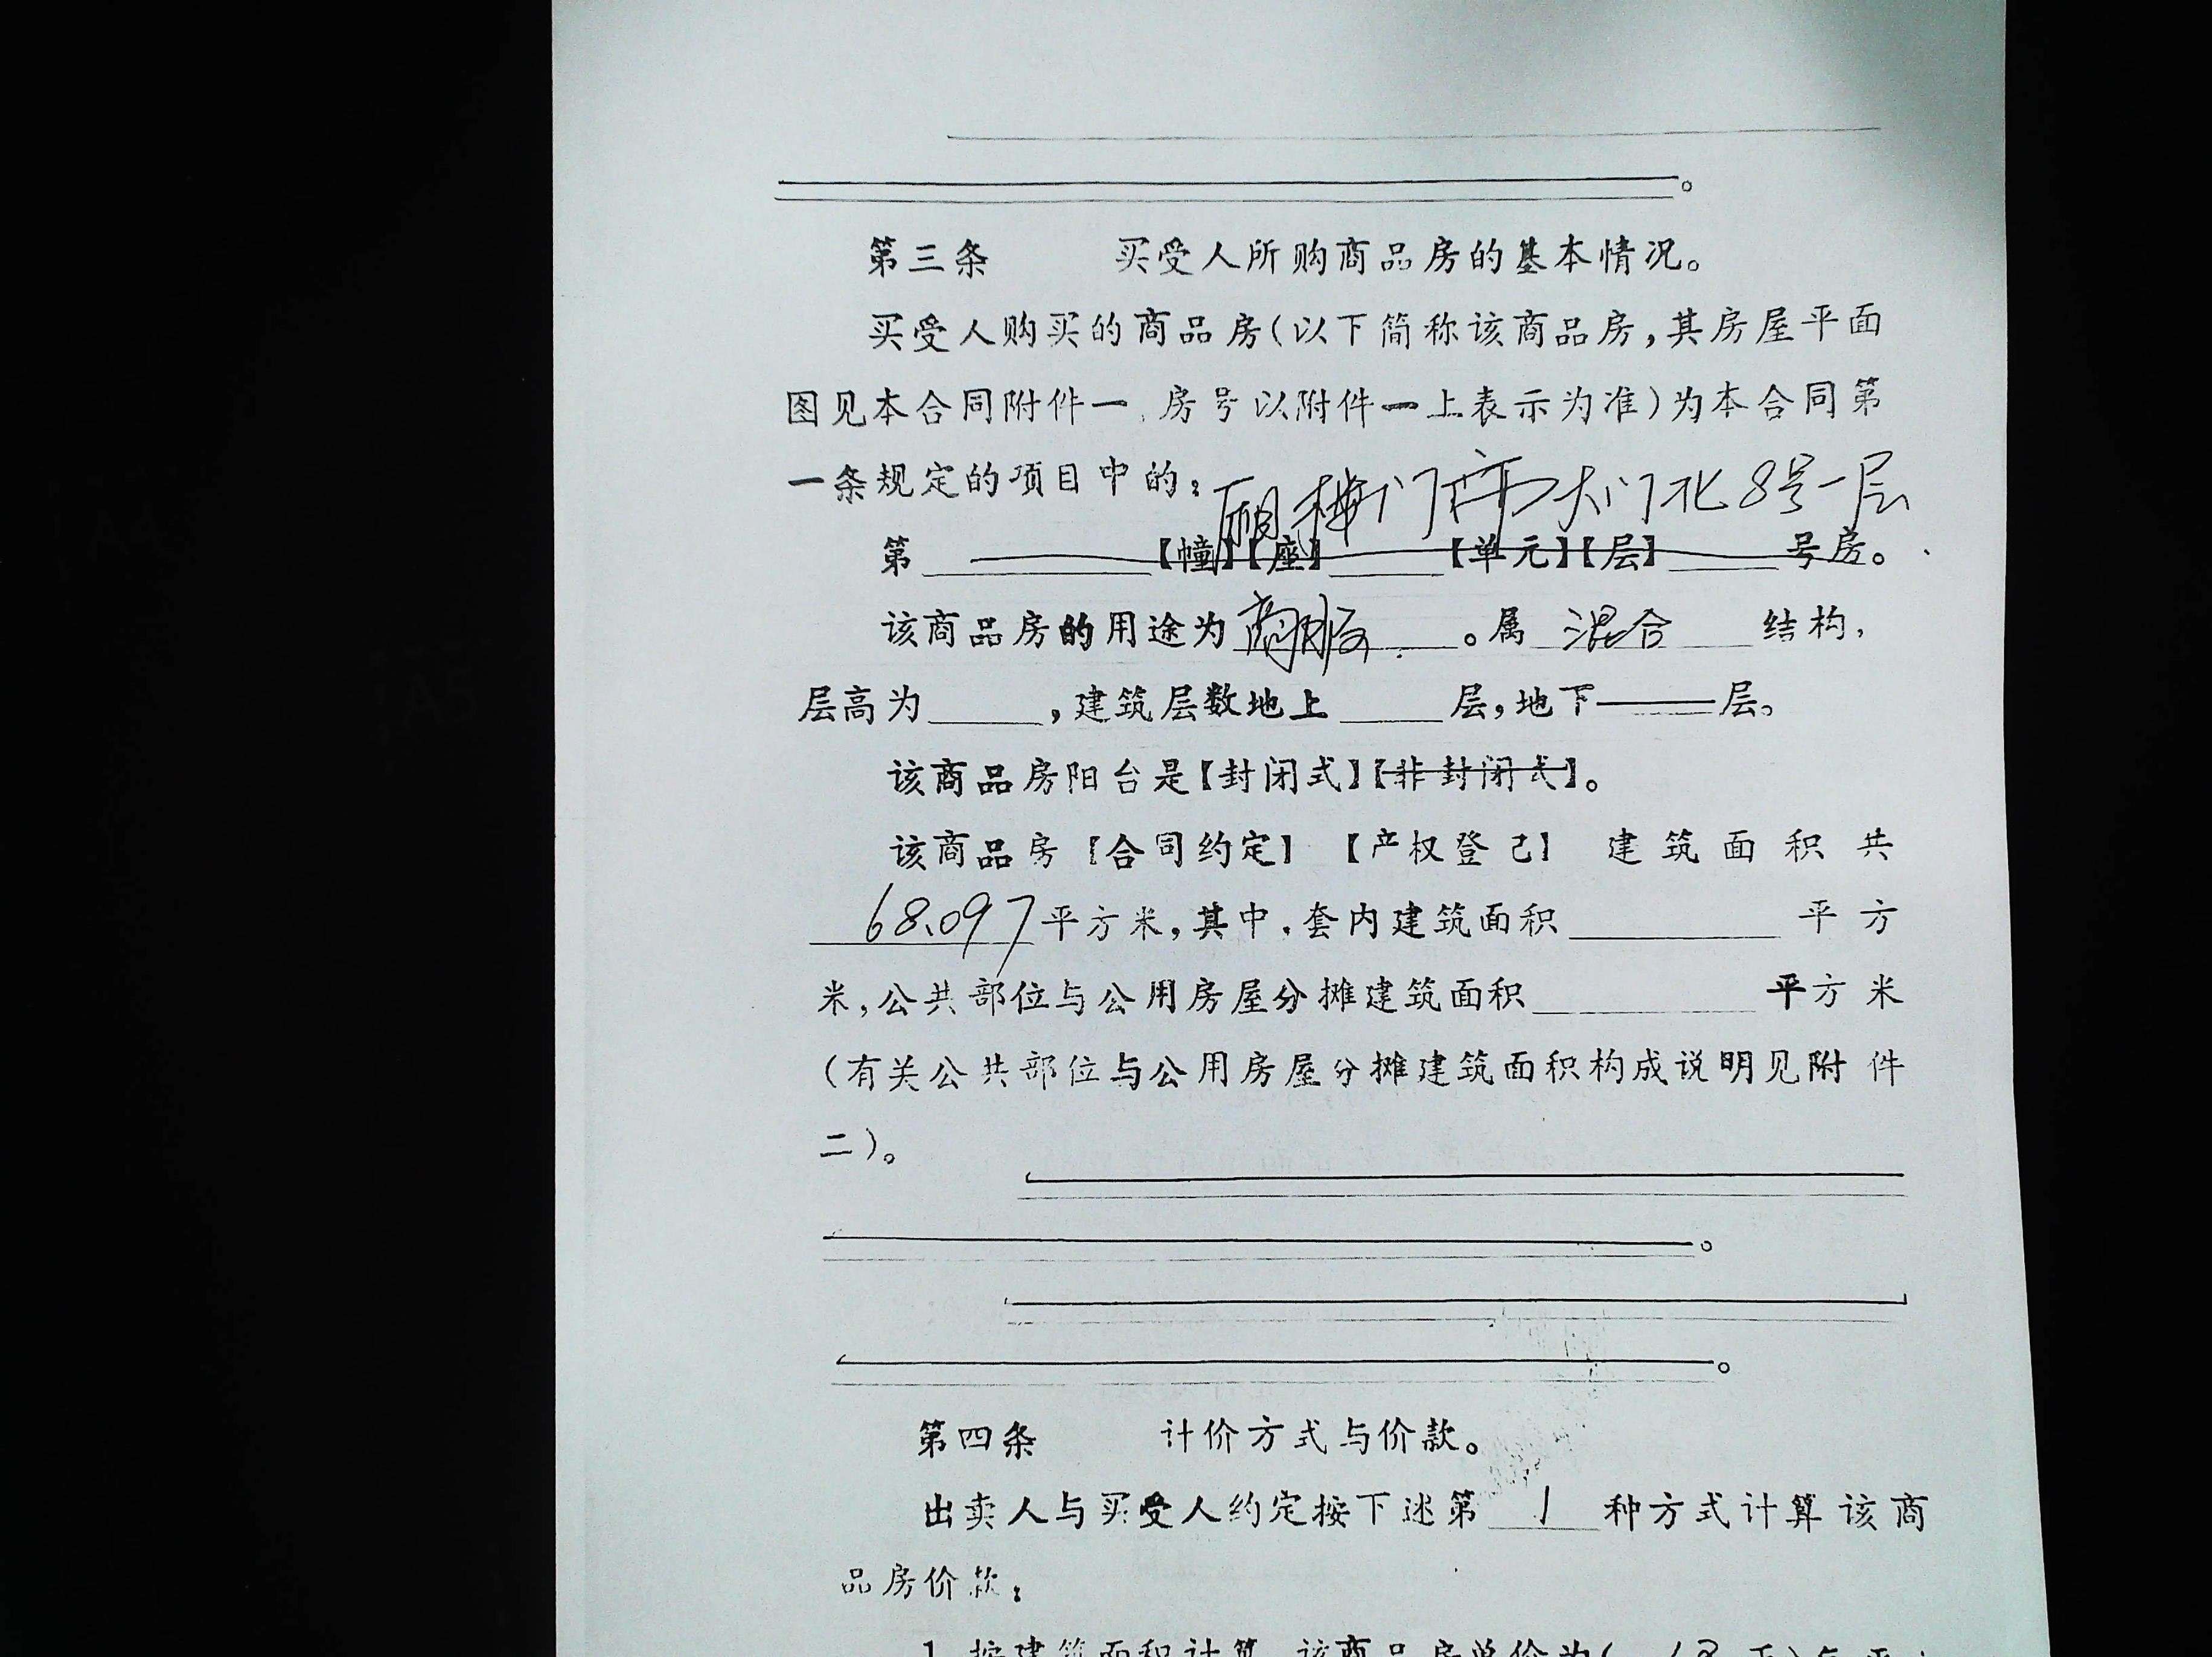 第三条 买受人所购商品房的基本情况。
买受人购买的商品房(以下简称该商品房,其房屋平面
图见本合同附件一,房号以附件一上表示为准)为本合同第
一条规定的项目中的: 门市大门北8号一层
第______【幢】【座】______【单元】【层】______号房。
该商品房的用途为 商服 。属 混合 结构,
层高为______,建筑层数地上______层,地下——层。
该商品房阳台是【封闭式】【非封闭式】。
该商品房【合同约定】【产权登记】建筑面积共
68.097平方米,其中,套内建筑面积______平方
米,公共部位与公用房屋分摊建筑面积______平方米
(有关公共部位与公用房屋分摊建筑面积构成说明见附件
二)。
第四条 计价方式与价款。
出卖人与买受人约定按下述第 1 种方式计算该商
品房价款:
1.按建筑面积计算,该商品房单价为(